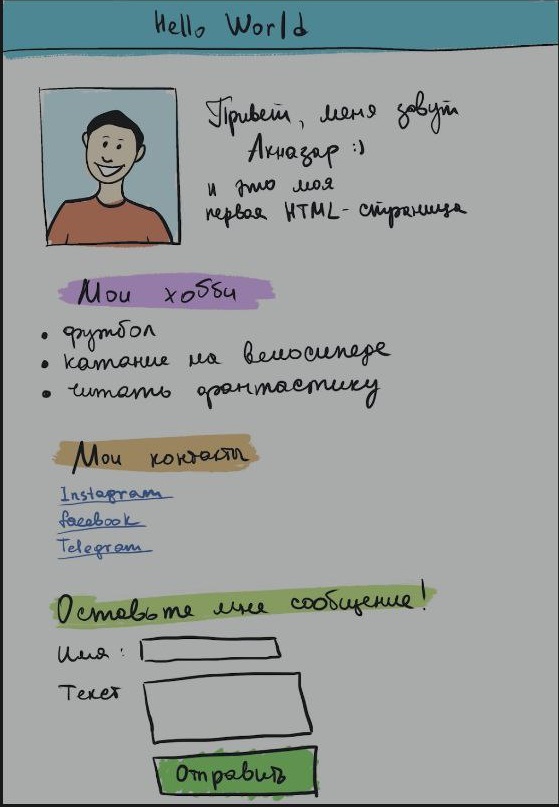 Hello World
Привет, меня зовут
Акназар :)
и это моя
первая HTML-страница
Мои хобби
• футбол
• катание на велосипеде
• читать фантастику
Мои контакты
Instagram
facebook
Telegram
Оставьте мне сообщение!
Имя :
Текст
Отправить